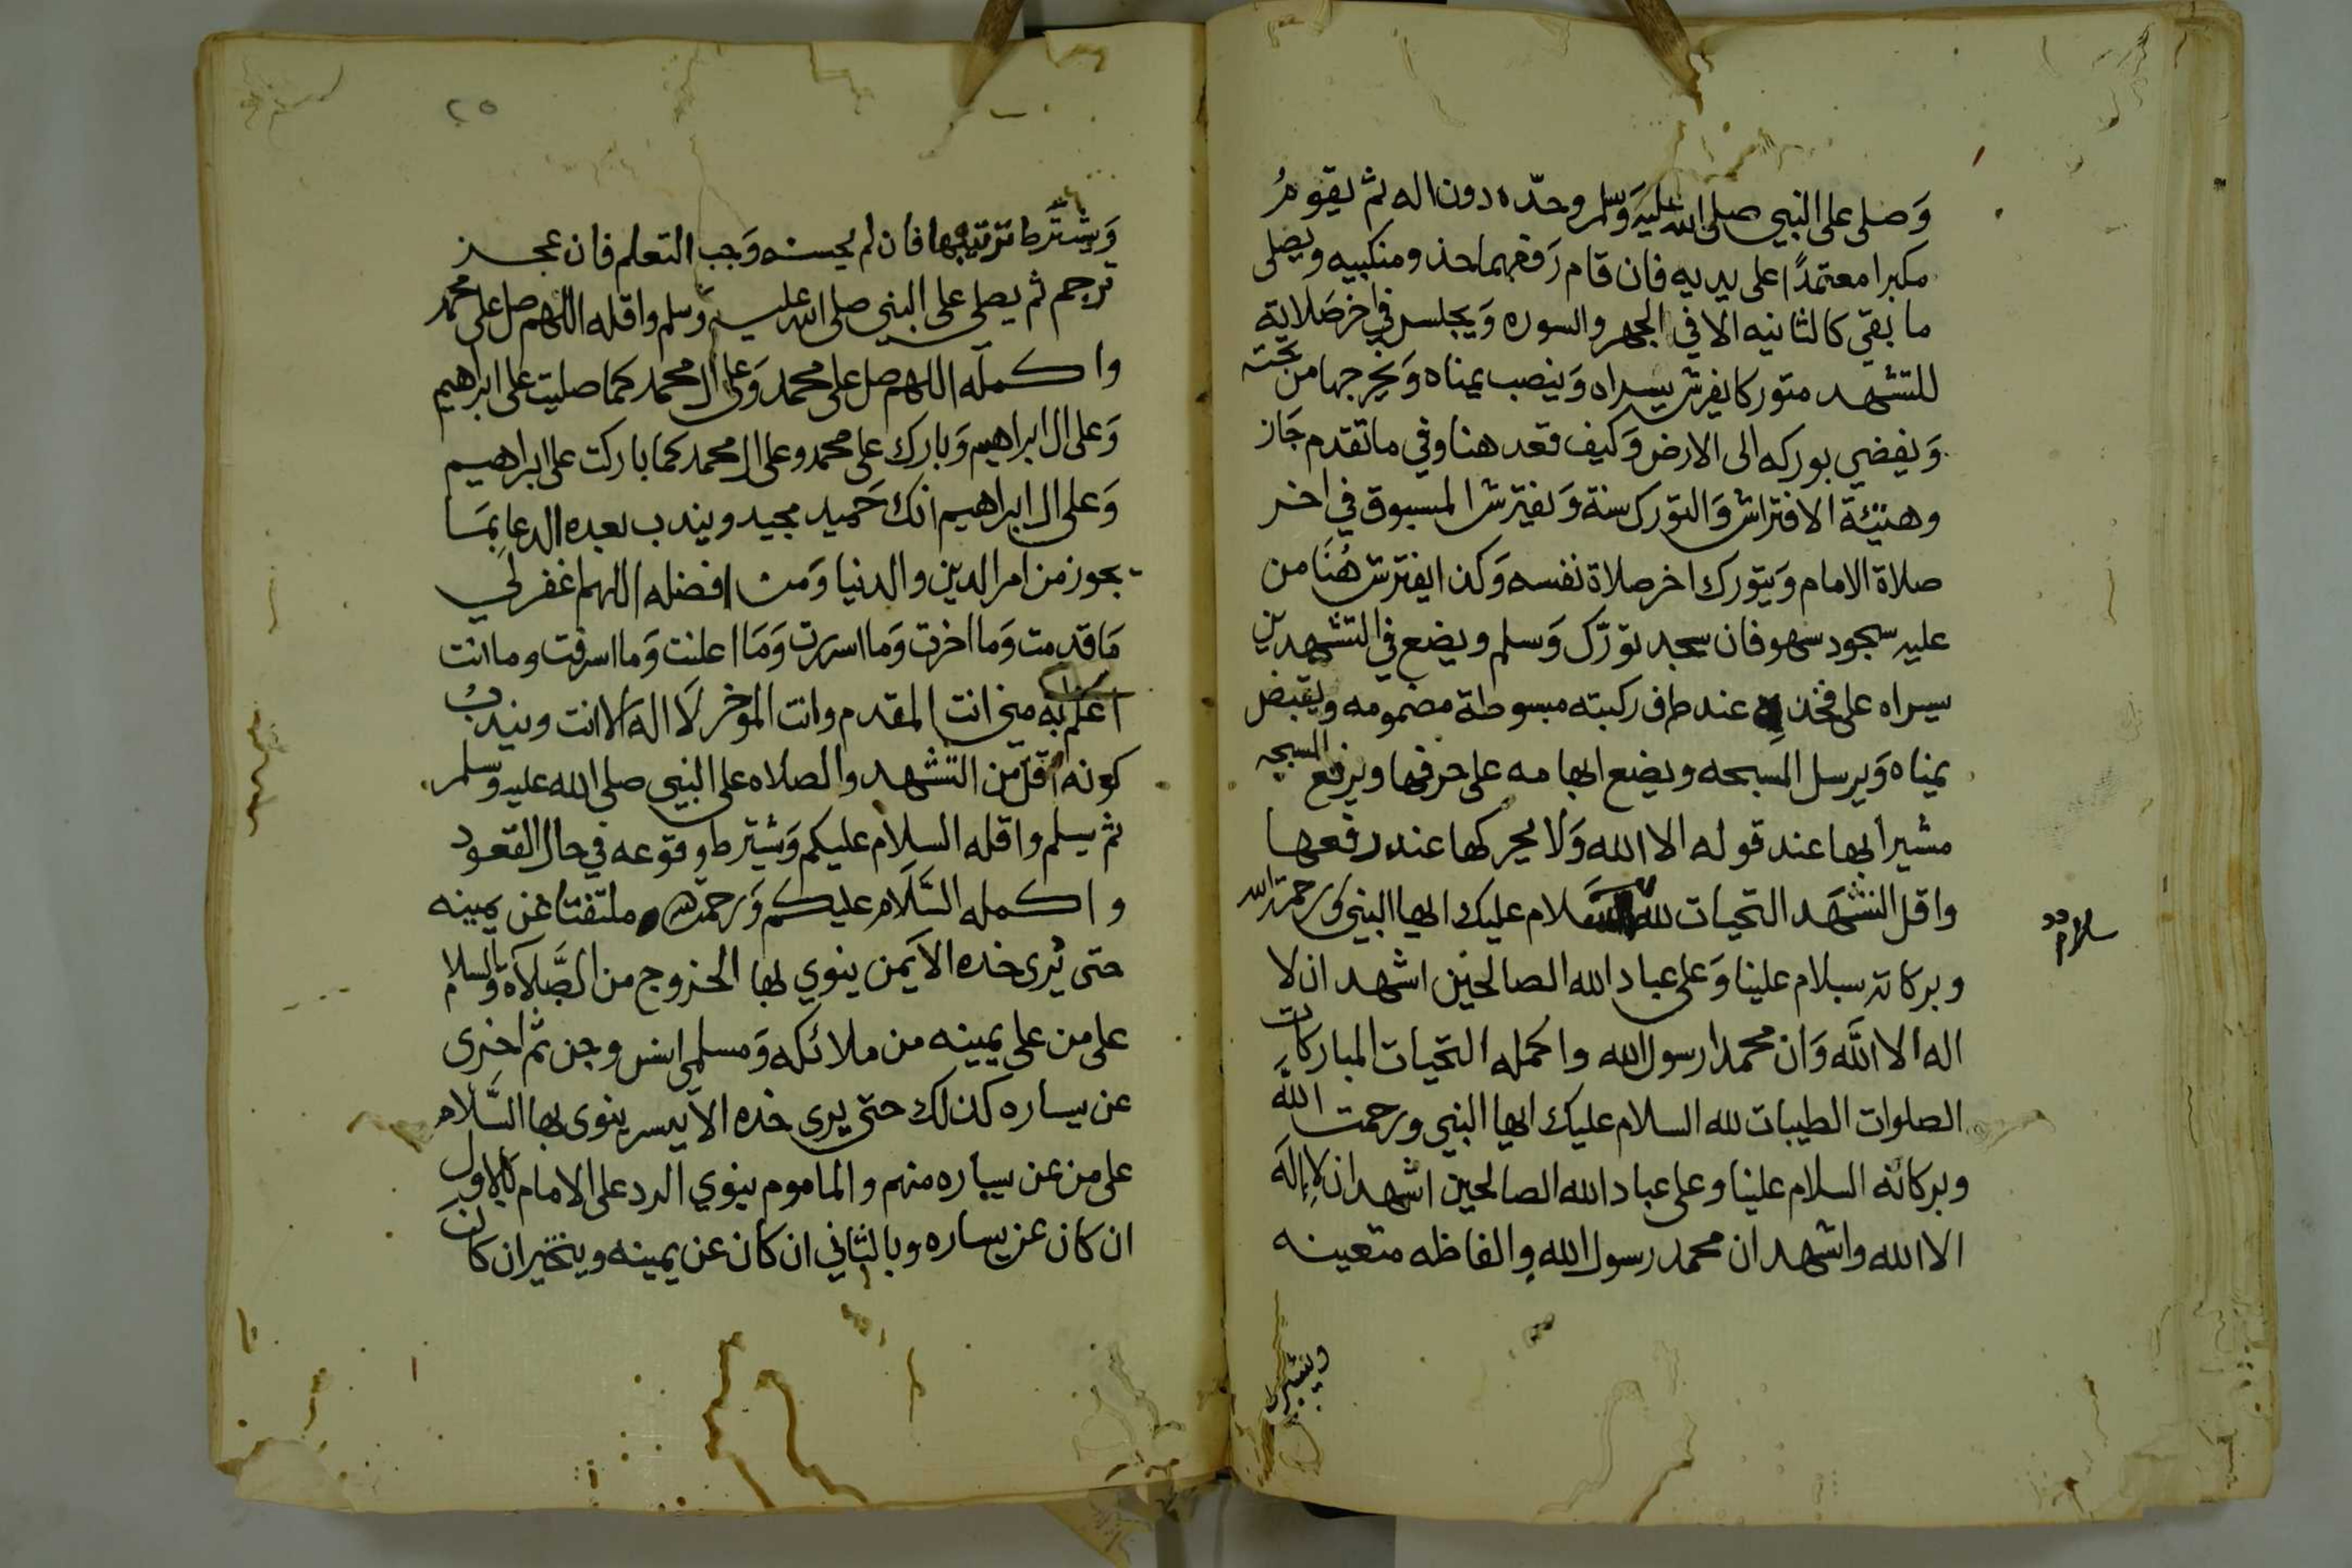 وَصلى على النبي صلى الله عليه وَسلم وحدّه دون اله ثم يقومُ
مكبرا معتمدًا على يديه فان قام رَفعهما حذو منكبيه ويصلى
ما بقي كالثانيه الا في الجهر والسوره وَيجلس في اخر صَلاية
للتشهد متوركا يفرش يسراه وَينصب يمناه وَيخرجها من تحته
وَيفضي بوركه الى الارض وَكيف قعد هنا وفي ما تقدم جَاز
وهيئة الافتراش وَالتورك سنة وَيفترش المسبوق في اخر
صلاة الامام وَيتورك اخر صلاة نفسه وَكذا يفترش هُنَا من
عليه سجود سهو فان سجد تورّك وَسلم ويضع في التشهدين
يسراه على فخذه عند طرف ركبته مبسوطة مضمومه ويقبض
يمناه وَيرسل المسبحه ويضع ابهامه على حرفها ويرفع المسبحه
مشيرا بها عند قوله الا الله وَلا يحركها عند رفعها
واقل التشهَد التحيات لله سلام عليك ايها النبي ورحمة الله
سلام
وبركاته سلام علينا وَعلى عباد الله الصالحين اشهد ان لا
اله الا اللَّه وَان محمدا رسول الله واكمله التحيات المباركات
الصلوات الطيبات لله السلام عليك ايها النبي ورحمت اللَّه
وبركاته السلام علينا وعلى عباد الله الصالحين اشهد ان لا إلَه
الا الله واشهد ان محمد رسول الله والفاظه متعينه
ويشترط
٢٥
وَيشتَرط ترتيبها فان لم يحسنه وَجب التعلم فان عجز
ترجم ثم يصلي على النبي صلى الله عليه وسلم واقله اللهم صل على محمد
واكمله اللهم صل على محمد وَعلى ال محمد كما صليت على ابراهيم
وَعلى ال ابراهيم وَبارك على محمد وعلى ال محمد كما باركت على ابراهيم
وَعلى ال ابراهيم انك حَميد مجيد ويندب بعده الدعا بمَا
يجوز من امر الدين والدنيا وَمن افضله اللهم اغفر لي
مَا قدمت وَما اخرت وَما اسررت وَمَا اعلنت وَما اسرفت وما انت
اعلم به مني انت المقدم وانت الموخر لَا اله الا انت ويندبُ
كونه اقل من التشهد والصلاه على النبي صلى الله عليه وسلم
ثم يسلم واقله السلام عليكم وَيشترط وقوعه في حال القعود
واكمله السَّلام عليكم وَرحمة الله ملتفتا عن يمينه
حتى يُرى خده الاَيمن ينوي بها الخروج من الصَّلاة والسلام
على من على يمينه من ملائكه وَمسلمى انس وجن ثم اخرى
عن يساره كذلك حتى يرى خده الاَيسر ينوى بها السَّلام
على من عن يساره منهم والماموم ينوي الرد على الامام بالاول
ان كان عن يساره وبالثاني ان كان عن يمينه ويتخير ان كانَ